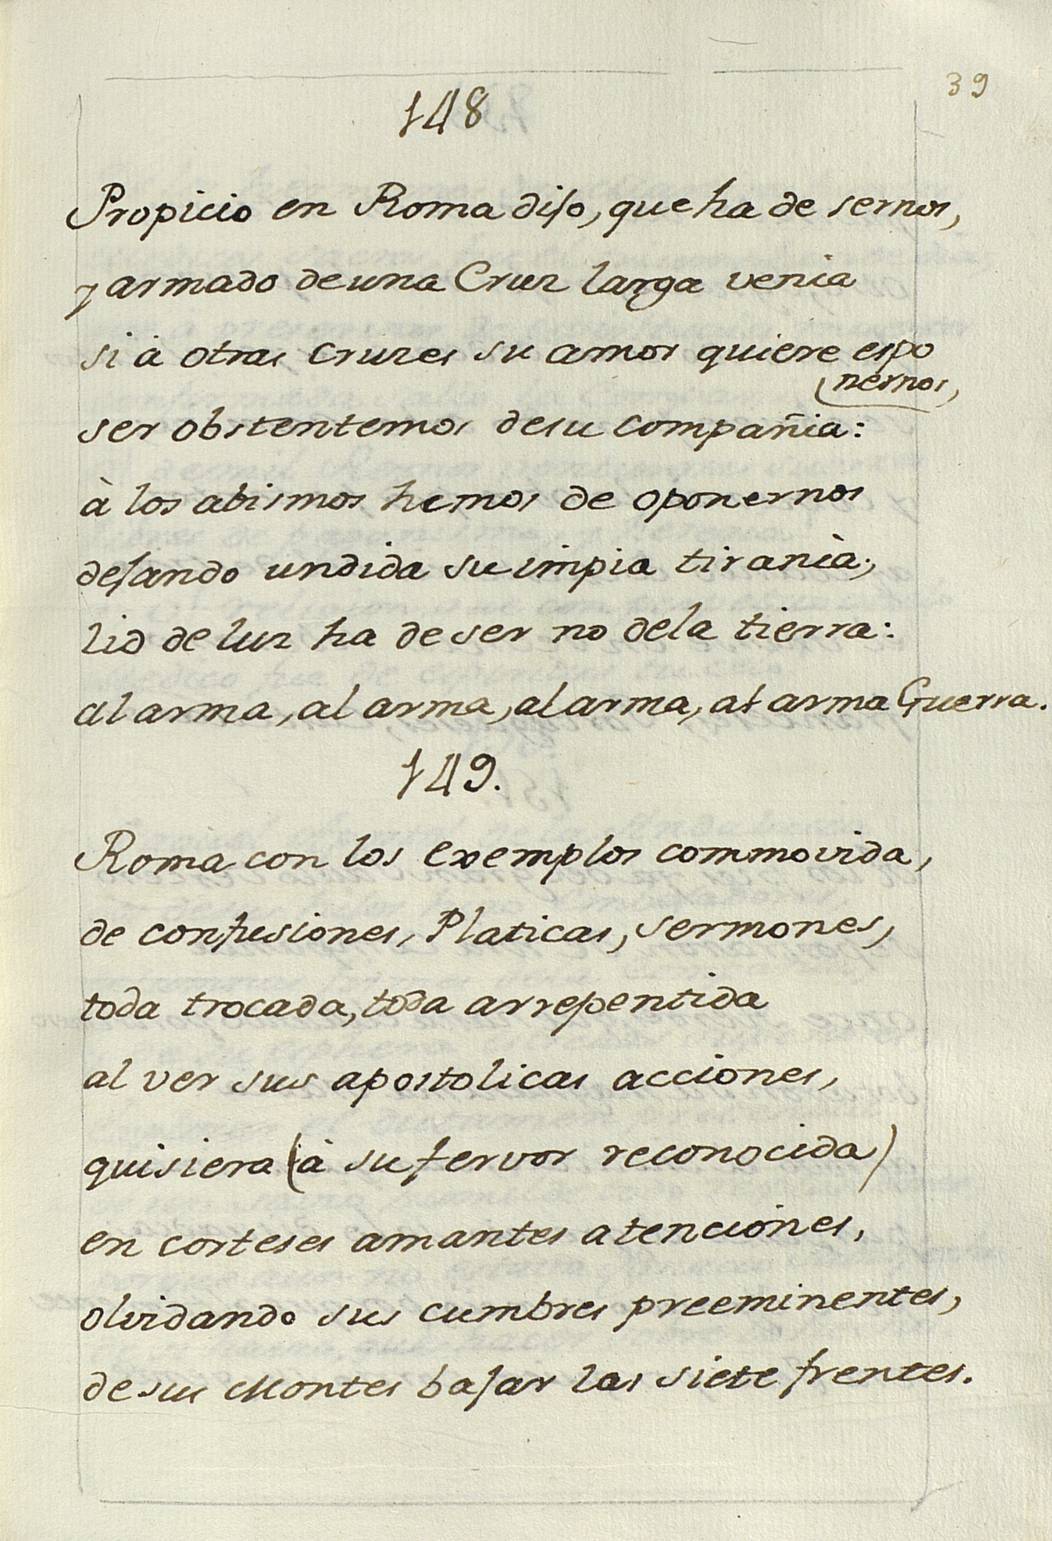 39
148
Propicio en Roma dijo, que ha de sernos,
y armado de una Cruz larga venia
si à otras cruzes su amor quiere espo
nernos,
ser obstentemos de su compañia:
à los abismos hemos de oponernos
dejando undida su impia tirania;
lid de luz ha de ser no de la tierra:
al arma, al arma, al arma, al arma Guerra.
149.
Roma con los exemplos commovida,
de confusiones, Platicas, sermones,
toda trocada, toda arrepentida
al ver sus apostolicas acciones,
quisiera (à su fervor reconocida)
en corteses amantes atenciones,
olvidando sus cumbres preeminentes,
de sus Montes bajar las siete frentes.